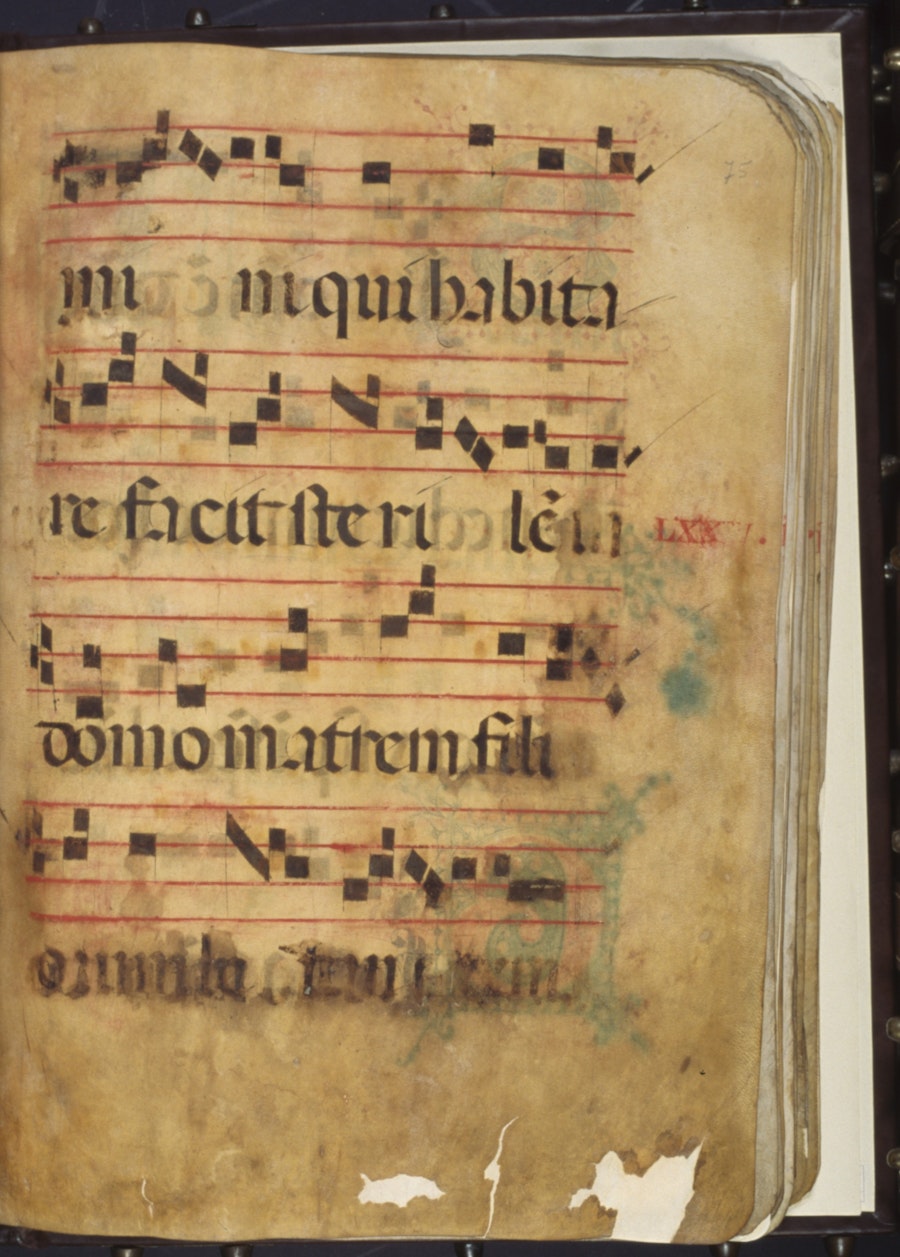 75
mi ni qui habita
re facit steri lē in
LXXV.
domo matrem fili
orum